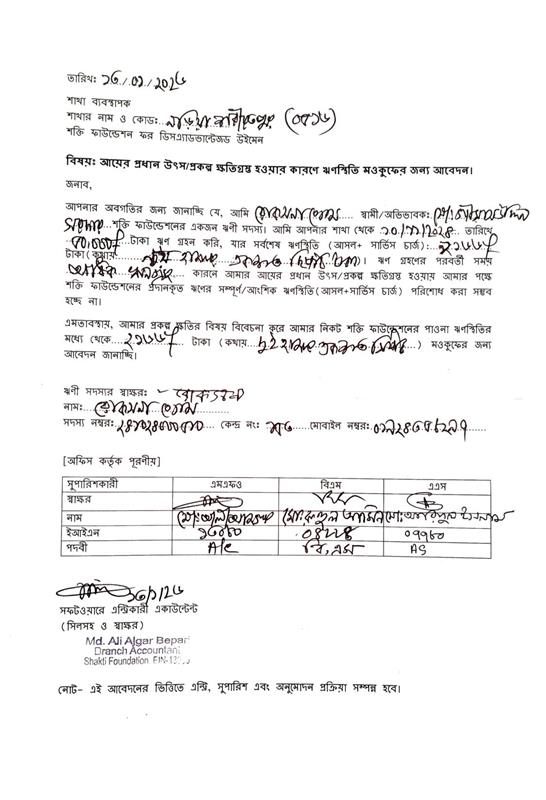 তারিখঃ ১৩/০১/২০২৬
শাখা ব্যবস্থাপক
শাখার নাম ও কোডঃ নড়িয়া শরীয়তপুর
শক্তি ফাউন্ডেশন ফর ডিসএ্যাডভান্টেজড উইমেন
বিষয়ঃ আয়ের প্রধান উৎস/প্রকল্প ক্ষতিগ্রস্ত হওয়ার কারণে ঋণস্থিতি মওকুফের জন্য আবেদন।
জনাব,
আপনার অবগতির জন্য জানাচ্ছি যে, আমি রোকসানা বেগম স্বামী/অভিভাবকঃ
সরদার শক্তি ফাউন্ডেশনের একজন ঋণী সদস্যা। আমি আপনার শাখা থেকে ২০/১১/২০২৪ তারিখে
টাকা ঋণ গ্রহন করি, যার সর্বশেষ ঋণস্থিতি (আসল+ সার্ভিস চার্জ):
টাকা(কথায় হাজার একশত টাকা)। ঋণ গ্রহণের পরবর্তী সময়
কারনে আমার আয়ের প্রধান উৎস/প্রকল্প ক্ষতিগ্রস্ত হওয়ায় আমার পক্ষে
শক্তি ফাউন্ডেশনের প্রদানকৃত ঋণের সম্পূর্ণ/আংশিক ঋণস্থিতি(আসল+সার্ভিস চার্জ) পরিশোধ করা সম্ভব
হচ্ছে না।
এমতাবস্থায়, আমার প্রকল্প ক্ষতির বিষয় বিবেচনা করে আমার নিকট শক্তি ফাউন্ডেশনের পাওনা ঋণস্থিতির
মধ্যে থেকে টাকা (কথায় দুই হাজার একশত) মওকুফের জন্য
আবেদন জানাচ্ছি।
ঋণী সদস্যর স্বাক্ষরঃ - রোকসানা
নামঃ রোকসানা বেগম
সদস্য নম্বরঃ কেন্দ্র নংঃ মোবাইল নম্বরঃ
[অফিস কর্তৃক পূরণীয়]
সুপারিশকারী এমএফও বিএম এএস
স্বাক্ষর
নাম মোঃ রুহুল আমিন মোঃ আরিফুল ইসলাম
ইআইএন ০৭৭৮০
পদবী A/c বি,এম AS
১৩/১/২৬
সফটওয়ারে এন্ট্রিকারী একাউন্টেন্ট
(সিলসহ ও স্বাক্ষর)
Md. Ali Ajgar Bepari
Branch Accountant
Shakti Foundation
নোট- এই আবেদনের ভিত্তিতে এন্ট্রি, সুপারিশ এবং অনুমোদন প্রক্রিয়া সম্পন্ন হবে।